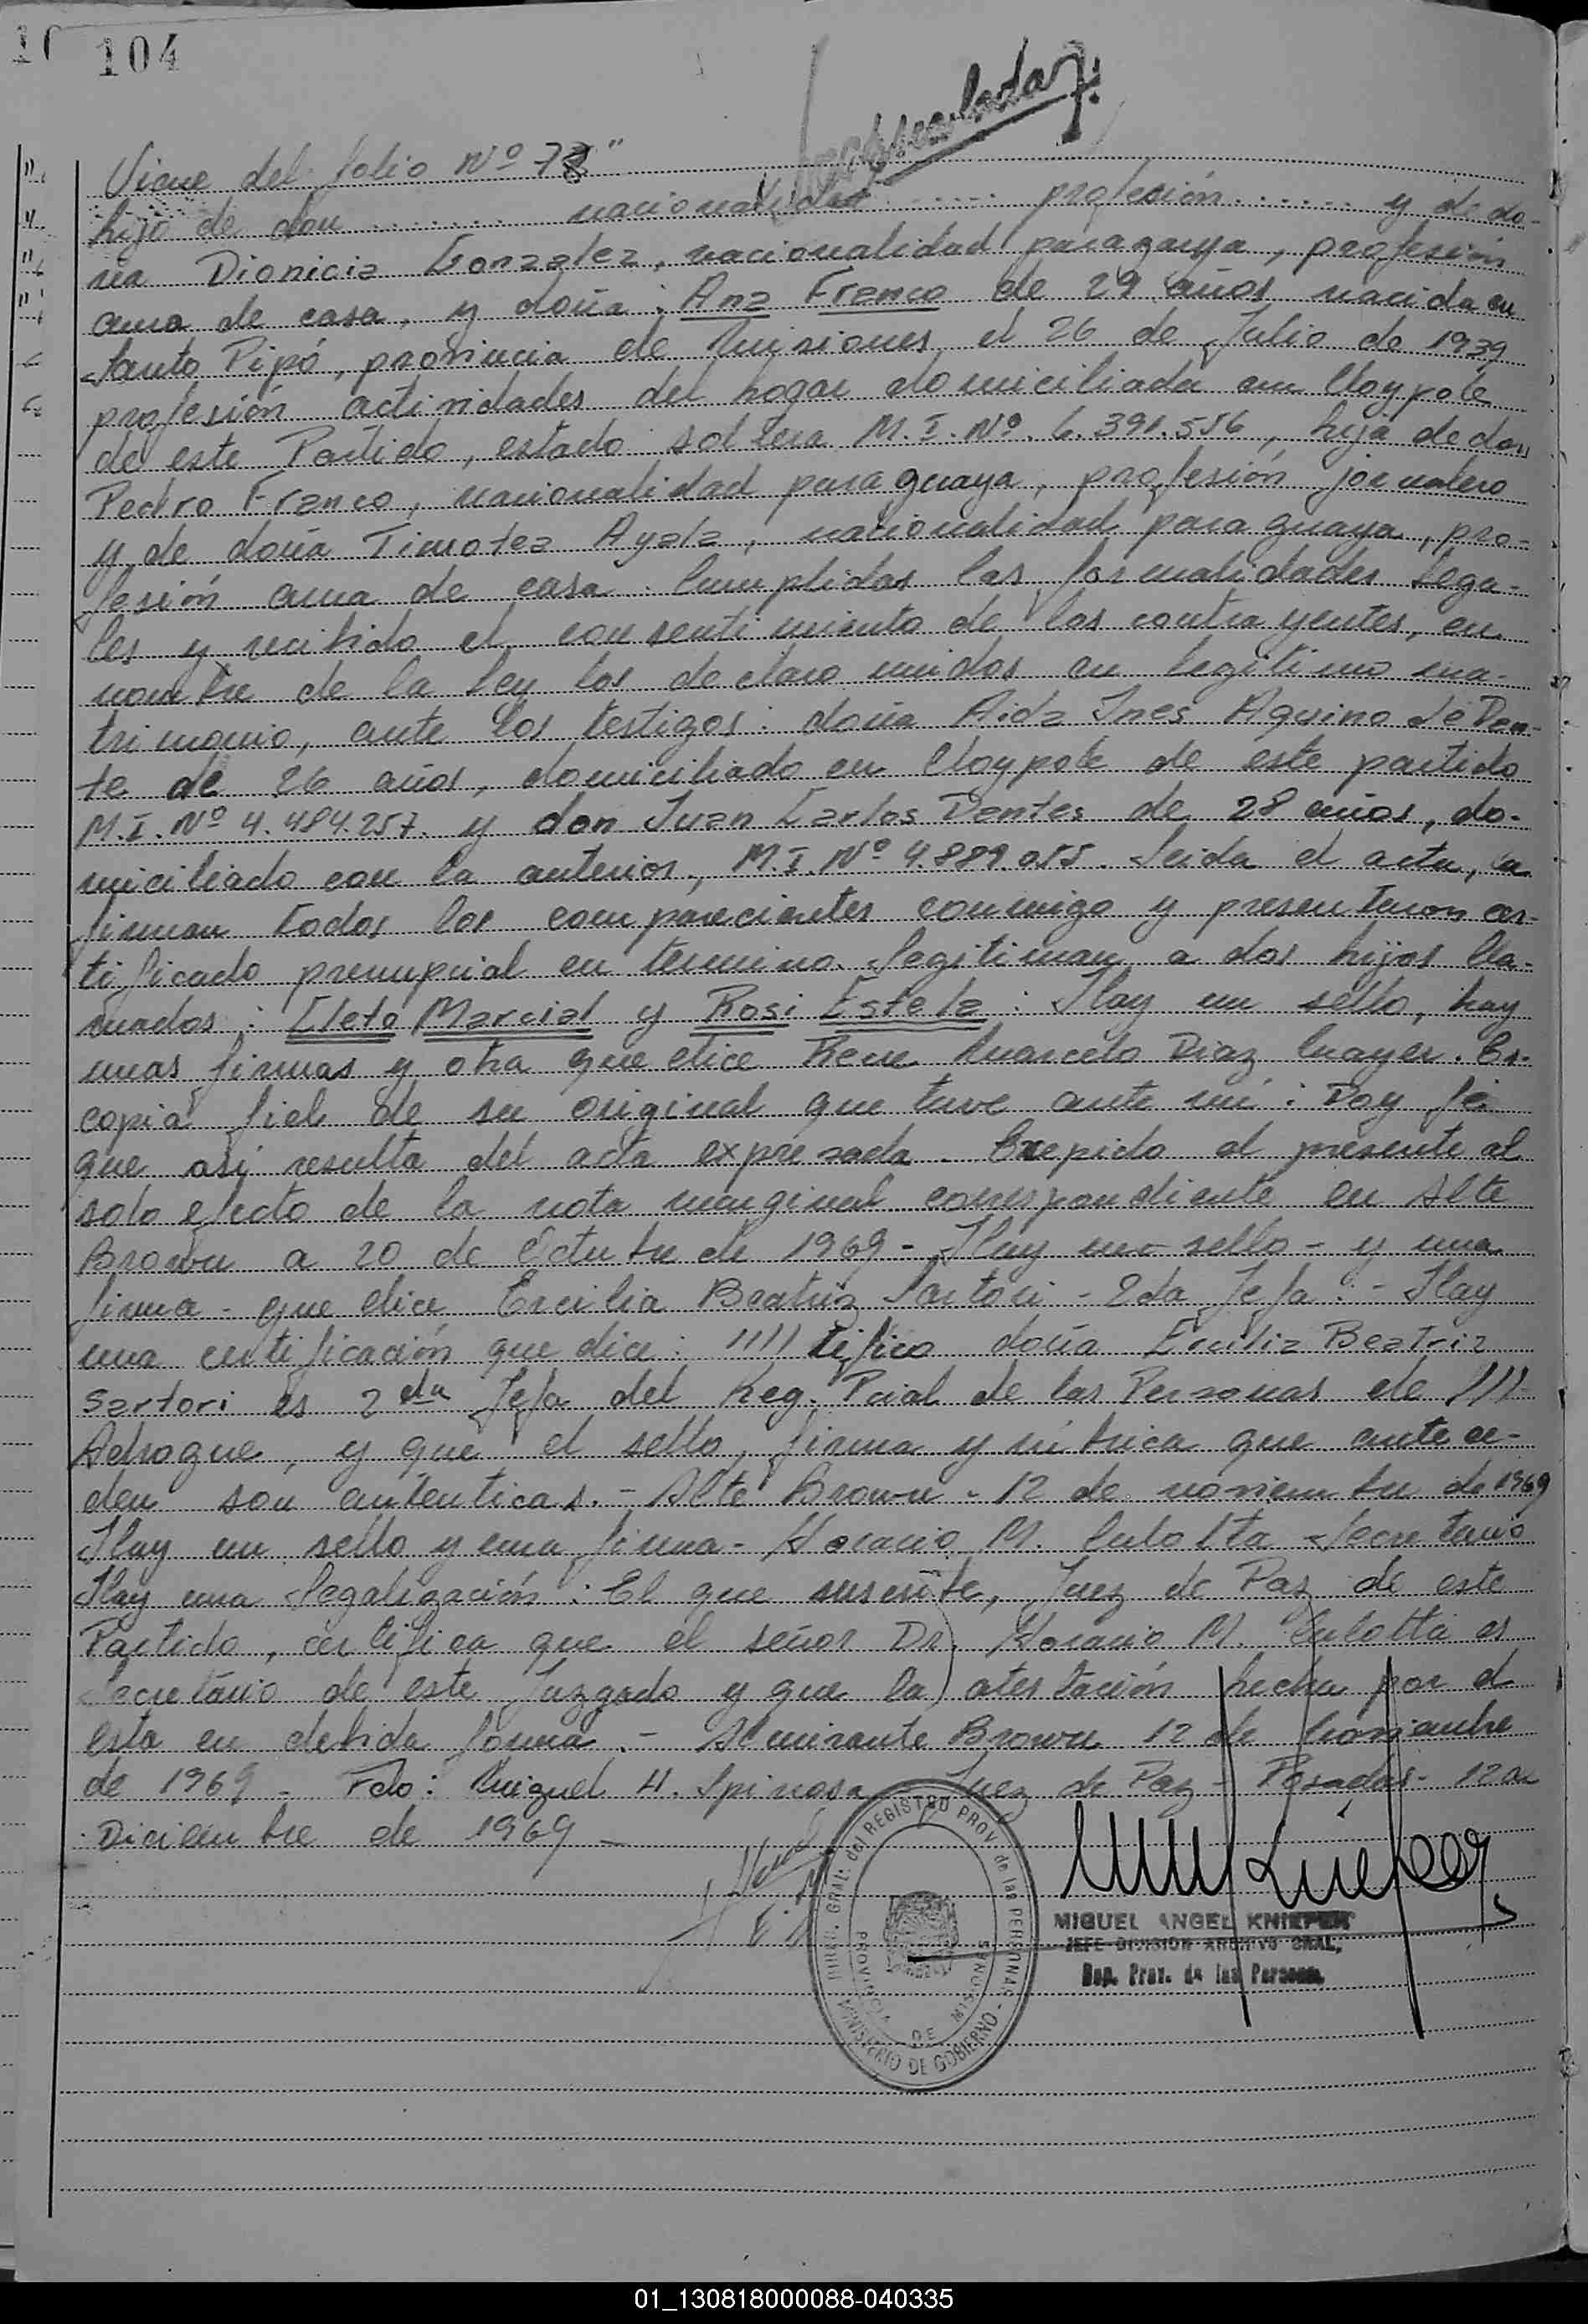 104
Viene del folio Nº 78"
hijo de don ....... nacionalidad ..... profesión ...... y de do-
ña Dionicia Gonzalez, nacionalidad paraguaya, profesión
ama de casa, y doña: Ana Franco de 29 años nacida en
Santo Pipó, provincia de Misiones el 26 de Julio de 1939
profesión actividades del hogar domiciliada en Claypole
de este Partido, estado soltera M.I. Nº. 6.391.556, hija de don
Pedro Franco, nacionalidad paraguaya, profesión jornalero
y de doña Timotea Ayala, nacionalidad paraguaya, pro-
fesión ama de casa. Cumplidas las formalidades lega-
les y recibido el consentimiento de los contrayentes, en
nombre de la ley los declaro unidos en legitimo ma-
trimonio, ante los testigos: doña Aida Ines Aquino de Den-
te de 26 años, domiciliado en Claypole de este partido
M.I. Nº 4.484.257. y don Juan Carlos Dentes de 28 años, do-
miciliado con la anterior, M.I. Nº 4.889.055. Leida el acta, la
firman todos los comparecientes conmigo y presentaron cer-
tificado prenupcial en termino. Legitiman a dos hijos lla-
mados: Cleto Marcial y Rosi Estela: Hay un sello, hay
unas firmas y otra que dice Rene Marcelo Diaz Mayer. Es
copia fiel de su original que tuve ante mi: Doy fé
que asi resulta del acta expresada. Expido el presente al
solo efecto de la nota marginal correspondiente en Alte
Brown a 20 de Octubre de 1969 - Hay un sello - y una
firma - que dice Ercilia Beatriz Sartori - 2da Jefa. - Hay
una certificación que dice: //// tifico doña Ercilia Beatriz
Sartori es 2da Jefa del Reg. Pcial de las Personas de ///
Adrogue, y que el sello, firma y rúbrica que antece-
den son auténticas. - Alte Brown - 12 de noviembre de 1969
Hay un sello y una firma - Horacio M. Culotta Secretario
Hay una legalización: El que suscribe, Juez de Paz de este
Partido, certifica que el señor Dr. Horacio M. Culotta es
Secretario de este Juzgado y que la atestación hecha por el
esta en debida forma. - Almirante Brown 12 de Noviembre
de 1969 - Fdo: Miguel H. Spinosa - Juez de Paz - Posadas - 12 de
Diciembre de 1969 -
DIREC. GRAL. del REGISTRO PROV. de las PERSONAS - MINISTERIO DE GOBIERNO
PROVINCIA DE MISIONES
MIGUEL ANGEL KNIEPER
JEFE DIVISION ARCHIVO GRAL.
Rep. Prov. de las Personas
01_130818000088-040335